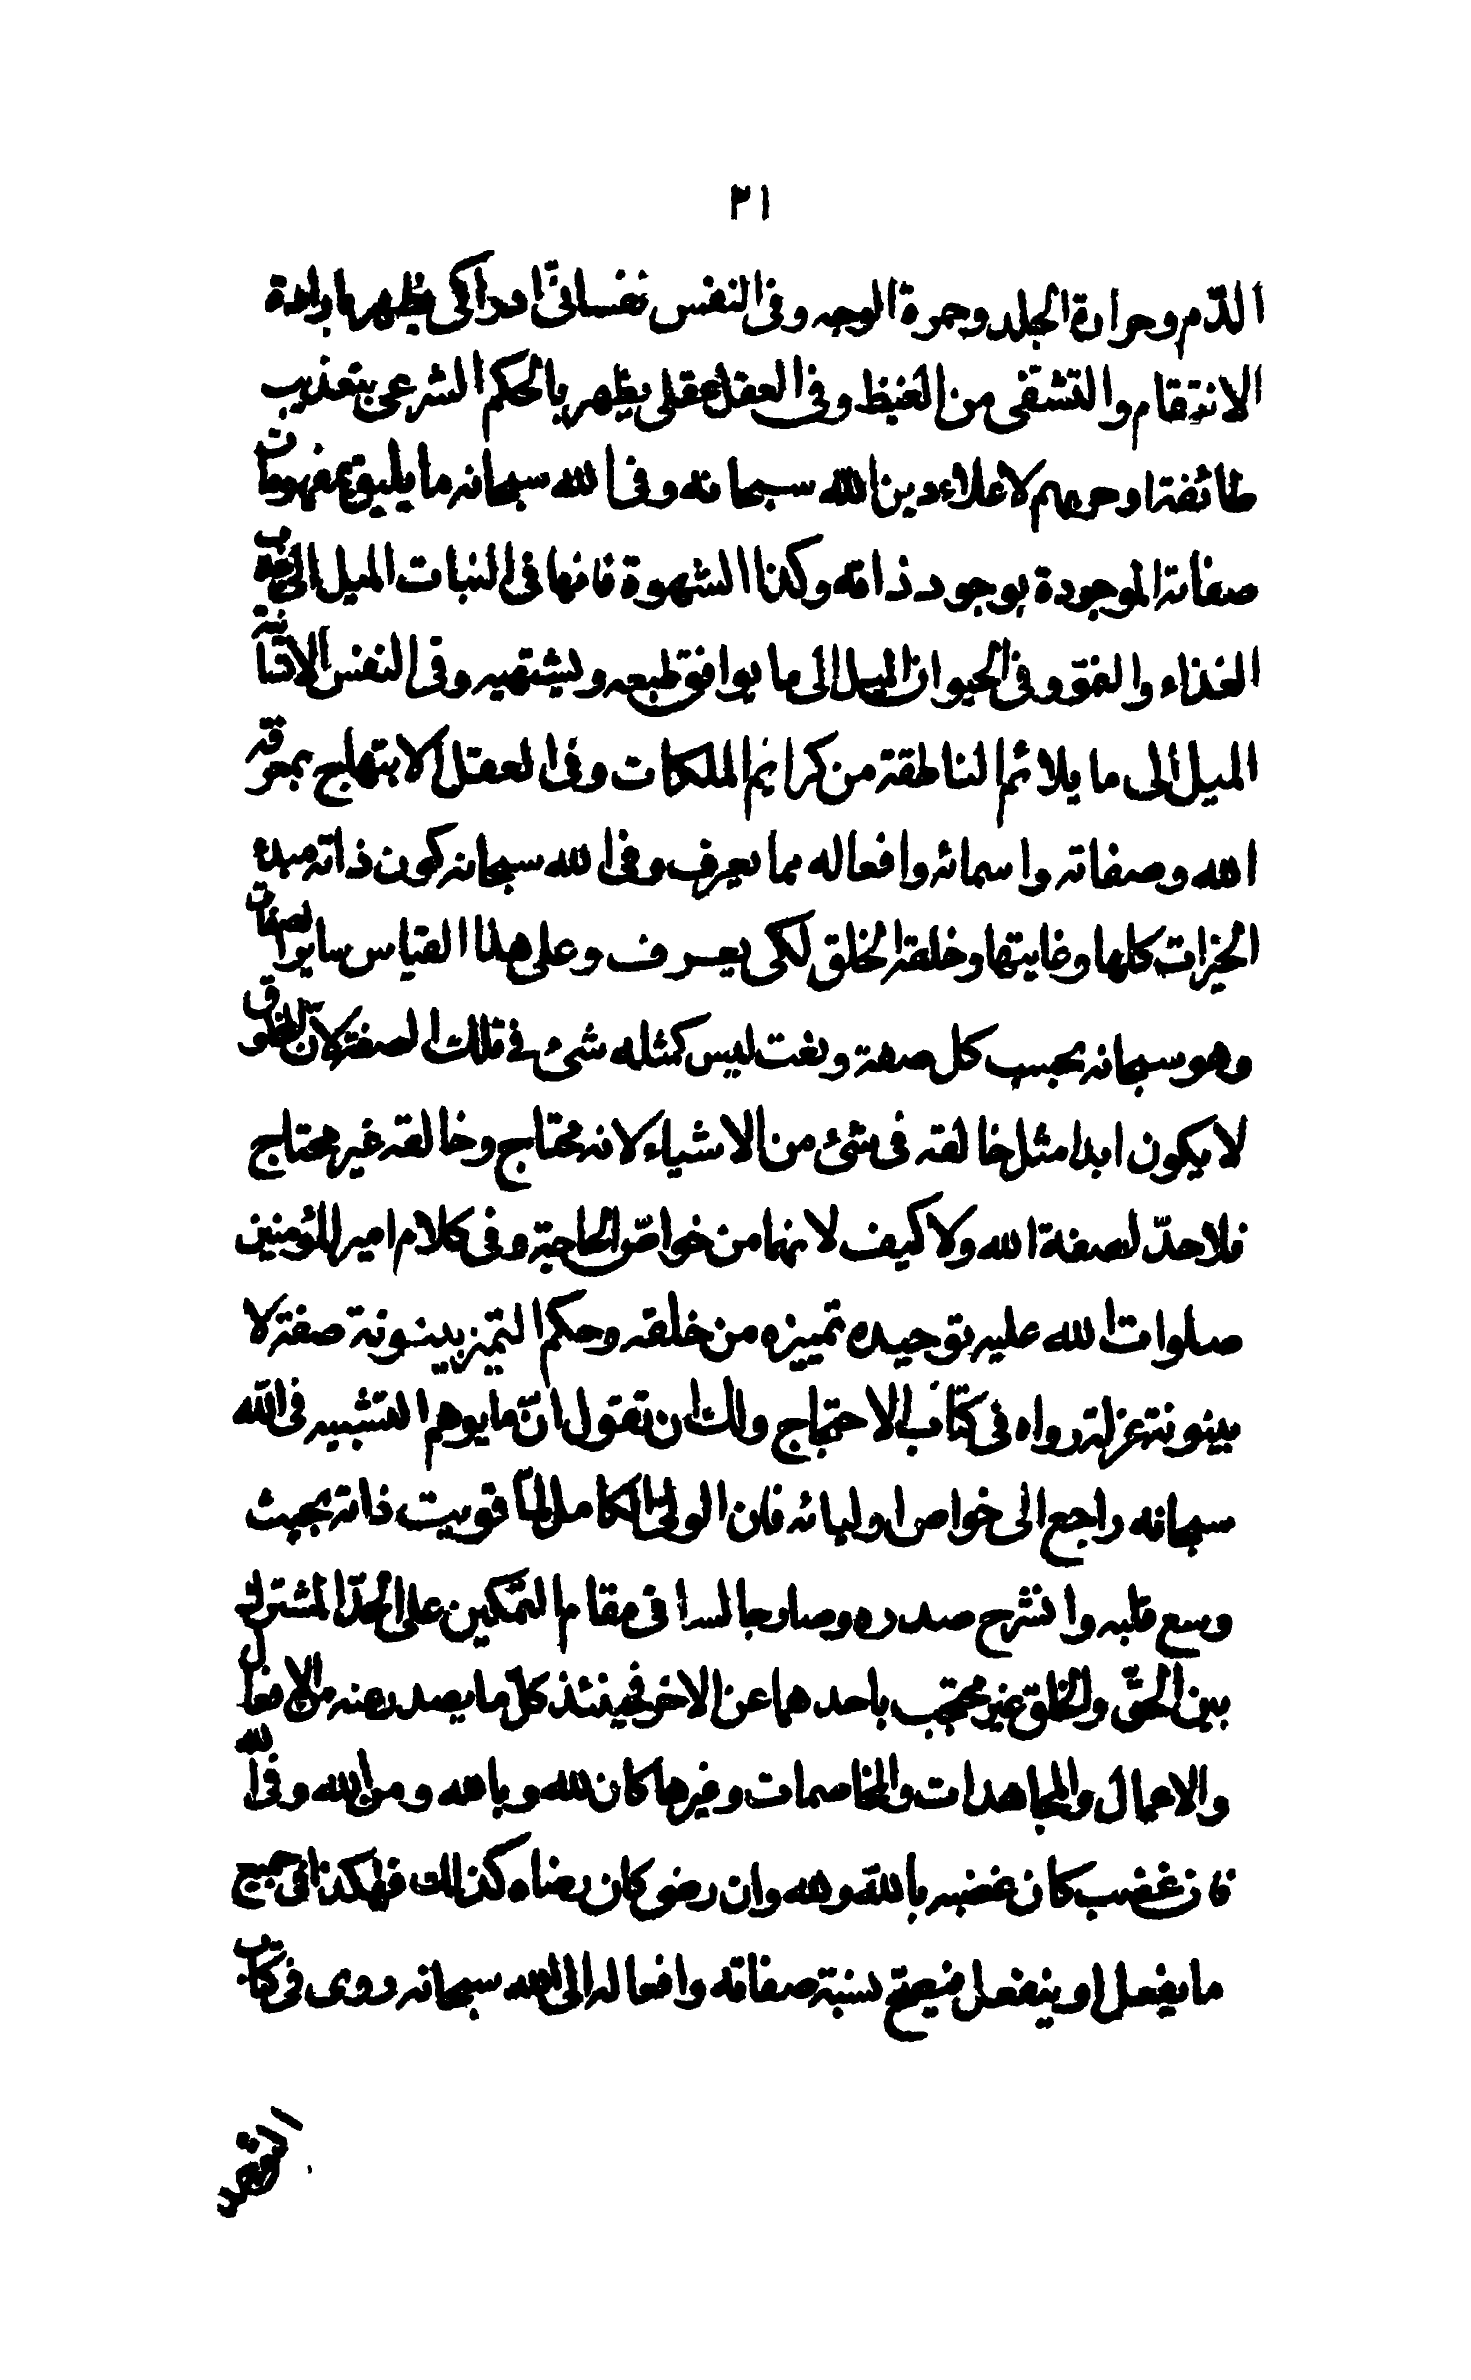 ٢١
الدّم وحرارة الجلد وحمرة الوجه وفى النفس نفسانىّ ادراكى يظهر بارادة
الانتقام والتشفى من الغيظ وفى العقل عقلى يظهر بالحكم الشرعى بتعذيب
طائفة او حربهم لاعلاء دين الله سبحانه وفى الله سبحانه ما يليق بمفهومات
صفاته الموجودة بوجود ذاته وكذا الشهوة فانها فى النبات الميل الى
الغذاء والنمو وفى الحيوان الميل الى ما يوافق طبعه ويشتهيه وفى النفس الانسانية
الميل الى ما يلائم الناطقة من كرائم الملكات وفى العقل الابتهاج بمعرفة
الله وصفاته واسمائه وافعاله مما يعرف وفى الله سبحانه كون ذاته مبدء
الخيرات كلها وغايتها وخلقه الخلق لكى يعرف وعلى هذا القياس ساير الصفات
وهو سبحانه بحسب كل صفة ونعت ليس كمثله شئ فى تلك الصفة لانّ المخلوق
لا يكون ابدا مثل خالقه فى شئ من الاشياء لانه محتاج وخالقه غير محتاج
فلا حدّ لصفة الله ولا كيف لانهما من خواصّ الحاجة وفى كلام امير المؤمنين
صلوات الله عليه توحيده تمييزه من خلقه وحكم التميز بينونة صفة لا
بينونة عزلة رواه فى كتاب الاحتجاج ولك ان تقول انّ ما يوهم التشبيه فى الله
سبحانه راجع الى خواص اوليائه فان الولىّ الكامل لمّا قويت ذاته بحيث
وسع قلبه وانشرح صدره وصار جالسا فى مقام التمكين على الحدّ المشترك
بين الحقّ والخلق غير محتجب باحدهما عن الاخر فحينئذ كلّ ما يصدر عنه من الافعال
والاعمال والمجاهدات والمخاصمات وغيرها كان لله وبالله ومن الله وفى الله
فان غضب كان غضبه بالله ولله وان رضى كان رضاه كذلك فهكذا فى جميع
ما يفعل او ينفعل فيصح نسبة صفاته وافعاله الى الله سبحانه روى فى كتاب